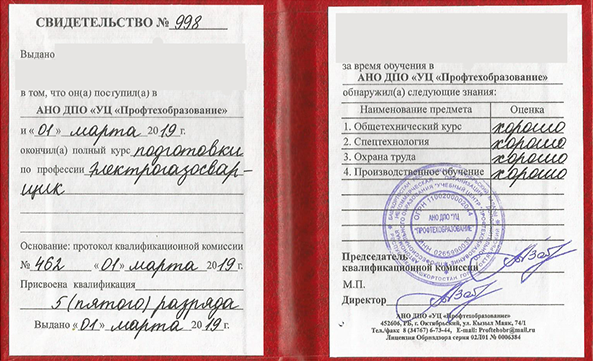 СВИДЕТЕЛЬСТВО № 998
Выдано
в том, что он(а) поступил(а) в
АНО ДПО «УЦ «Профтехобразование»
и « 01 » марта 2019 г.
окончил(а) полный курс подготовки
по профессии электрогазосвар-
щик
Основание: протокол квалификационной комиссии
№ 462 « 01 » марта 2019 г.
Присвоена квалификация
5 (пятого) разряда
Выдано « 01 » марта 2019 г.
за время обучения в
АНО ДПО «УЦ «Профтехобразование»
обнаружил(а) следующие знания:
Наименование предмета Оценка
1. Общетехнический курс хорошо
2. Спецтехнология хорошо
3. Охрана труда хорошо
4. Производственное обучение хорошо
АНО ДПО "УЦ
"ПРОФТЕХОБРАЗОВАНИЕ"
Председатель
квалификационной комиссии
М.П.
Директор
АНО ДПО «УЦ «Профтехобразование»
452606, РБ, г. Октябрьский, ул. Кызыл Маяк, 74/1
Тел./факс 8 (34767) 6-73-44, E-mail: Proftehobr@mail.ru
Лицензия Обрнадзора серия 02Л01 № 0006384